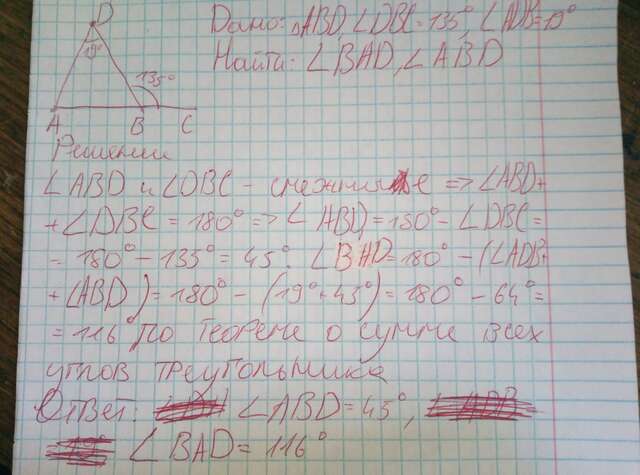 Дано: △ABD, ∠DBC = 135°, ∠ADB = 19°
Найти: ∠BAD, ∠ABD
D
19°
135°
A B C
Решении
∠ABD и ∠DBC - смежные => ∠ABD +
+ ∠DBC = 180° => ∠ABD = 180° - ∠DBC =
= 180° - 135° = 45°. ∠BAD = 180° - (∠ADB +
+ ∠ABD) = 180° - (19° + 45°) = 180° - 64° =
= 116° по теореме о сумме всех
углов треугольника
Ответ: ∠ABD = 45°,
∠BAD = 116°